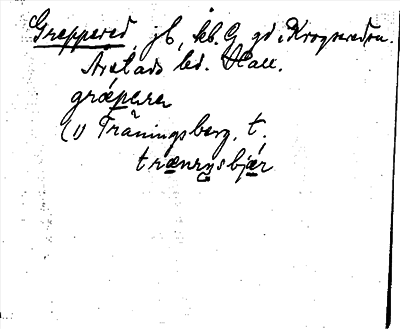 Greppered, jb, kb. G gd i Krogsered sn.
Årstads hd. Hall.
græpəra
(1) Träningsberg, t.
trænıŋsbjær